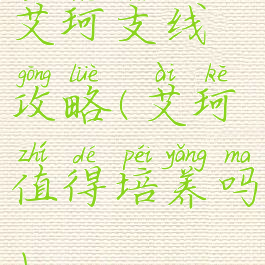 艾珂支线
gōng lüè ài kē
攻略(艾珂
zhí dé péi yǎng ma
值得培养吗
)